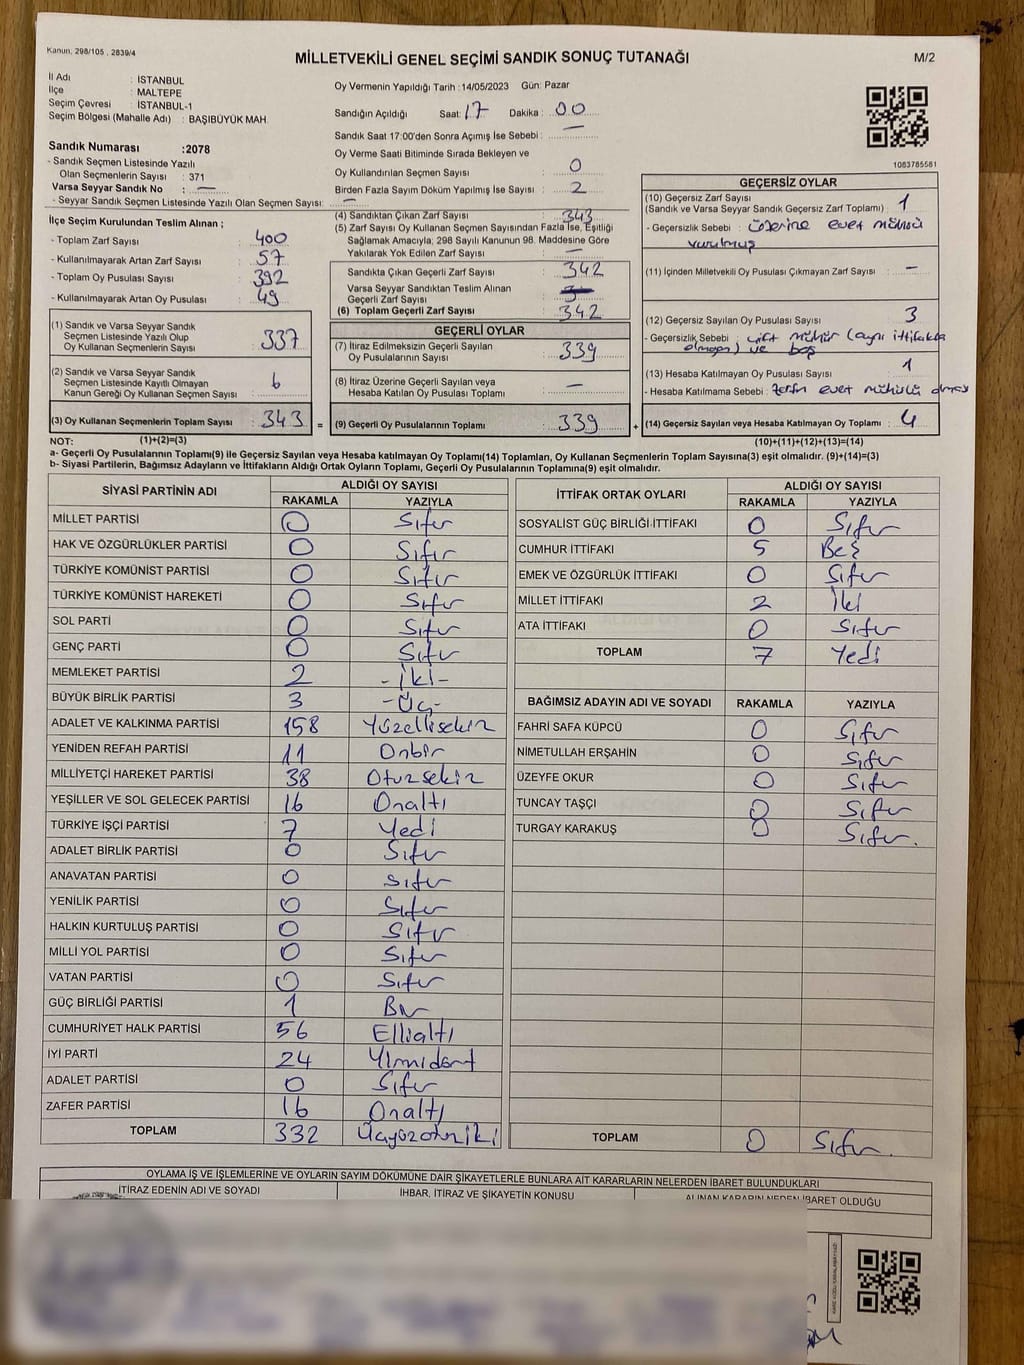 Kanun, 298/105 , 2839/4
MİLLETVEKİLİ GENEL SEÇİMİ SANDIK SONUÇ TUTANAĞI
M/2
İl Adı : İSTANBUL
İlçe : MALTEPE
Seçim Çevresi : İSTANBUL-1
Seçim Bölgesi (Mahalle Adı) : BAŞIBÜYÜK MAH.
Sandık Numarası :2078
- Sandık Seçmen Listesinde Yazılı
Olan Seçmenlerin Sayısı : 371
Varsa Seyyar Sandık No : —
- Seyyar Sandık Seçmen Listesinde Yazılı Olan Seçmen Sayısı : —
Oy Vermenin Yapıldığı Tarih :14/05/2023 Gün: Pazar
Sandığın Açıldığı Saat: 17 Dakika : 00
Sandık Saat 17:00'den Sonra Açımış İse Sebebi : —
Oy Verme Saati Bitiminde Sırada Bekleyen ve
Oy Kullandırılan Seçmen Sayısı : 0
Birden Fazla Sayım Döküm Yapılmış İse Sayısı : 2
1083785581
İlçe Seçim Kurulundan Teslim Alınan ;
- Toplam Zarf Sayısı : 400
- Kullanılmayarak Artan Zarf Sayısı : 57
- Toplam Oy Pusulası Sayısı : 392
- Kullanılmayarak Artan Oy Pusulası : 49
(1) Sandık ve Varsa Seyyar Sandık
Seçmen Listesinde Yazılı Olup
Oy Kullanan Seçmenlerin Sayısı : 337
(2) Sandık ve Varsa Seyyar Sandık
Seçmen Listesinde Kayıtlı Olmayan
Kanun Gereği Oy Kullanan Seçmen Sayısı : 6
(3) Oy Kullanan Seçmenlerin Toplam Sayısı : 343 =
(4) Sandıktan Çıkan Zarf Sayısı : 343
(5) Zarf Sayısı Oy Kullanan Seçmen Sayısından Fazla İse, Eşitliği
Sağlamak Amacıyla, 298 Sayılı Kanunun 98. Maddesine Göre
Yakılarak Yok Edilen Zarf Sayısı : —
Sandıkta Çıkan Geçerli Zarf Sayısı : 342
Varsa Seyyar Sandıktan Teslim Alınan
Geçerli Zarf Sayısı :
(6) Toplam Geçerli Zarf Sayısı : 342
GEÇERLİ OYLAR
(7) İtiraz Edilmeksizin Geçerli Sayılan
Oy Pusulalarının Sayısı : 339
(8) İtiraz Üzerine Geçerli Sayılan veya
Hesaba Katılan Oy Pusulası Toplamı : —
(9) Geçerli Oy Pusulalarının Toplamı : 339 +
GEÇERSİZ OYLAR
(10) Geçersiz Zarf Sayısı
(Sandık ve Varsa Seyyar Sandık Geçersiz Zarf Toplamı) : 1
- Geçersizlik Sebebi : üzerine evet mührü
vurulmuş
(11) İçinden Milletvekili Oy Pusulası Çıkmayan Zarf Sayısı : —
(12) Geçersiz Sayılan Oy Pusulası Sayısı : 3
- Geçersizlik Sebebi : çift mühür (aynı ittifakta
olmayan) ve boş
(13) Hesaba Katılmayan Oy Pusulası Sayısı : 1
- Hesaba Katılmama Sebebi : zarfın evet mühürlü olması
(14) Geçersiz Sayılan veya Hesaba Katılmayan Oy Toplamı : 4
NOT: (1)+(2)=(3) (10)+(11)+(12)+(13)=(14)
a- Geçerli Oy Pusulasının Toplamı(9) ile Geçersiz Sayılan veya Hesaba Katılmayan Oy Toplamı(14) Toplamları, Oy Kullanan Seçmenlerin Toplam Sayısına(3) eşit olmalıdır. (9)+(14)=(3)
b- Siyasi Partilerin, Bağımsız Adayların ve İttifakların Aldığı Ortak Oyların Toplamı, Geçerli Oy Pusulalarının Toplamına(9) eşit olmalıdır.
SİYASİ PARTİNİN ADI ALDIĞI OY SAYISI
RAKAMLA YAZIYLA
MİLLET PARTİSİ 0 Sıfır
HAK VE ÖZGÜRLÜKLER PARTİSİ 0 Sıfır
TÜRKİYE KOMÜNİST PARTİSİ 0 Sıfır
TÜRKİYE KOMÜNİST HAREKETİ 0 Sıfır
SOL PARTİ 0 Sıfır
GENÇ PARTİ 0 Sıfır
MEMLEKET PARTİSİ 2 -İki-
BÜYÜK BİRLİK PARTİSİ 3 -Üç-
ADALET VE KALKINMA PARTİSİ 158 Yüzellisekiz
YENİDEN REFAH PARTİSİ 11 Onbir
MİLLİYETÇİ HAREKET PARTİSİ 38 Otuzsekiz
YEŞİLLER VE SOL GELECEK PARTİSİ 16 Onaltı
TÜRKİYE İŞÇİ PARTİSİ 7 Yedi
ADALET BİRLİK PARTİSİ 0 Sıfır
ANAVATAN PARTİSİ 0 Sıfır
YENİLİK PARTİSİ 0 Sıfır
HALKIN KURTULUŞ PARTİSİ 0 Sıfır
MİLLİ YOL PARTİSİ 0 Sıfır
VATAN PARTİSİ 0 Sıfır
GÜÇ BİRLİĞİ PARTİSİ 1 Bir
CUMHURİYET HALK PARTİSİ 56 Ellialtı
İYİ PARTİ 24 Yirmidört
ADALET PARTİSİ 0 Sıfır
ZAFER PARTİSİ 16 Onaltı
TOPLAM 332 Üçyüzotuziki
İTTİFAK ORTAK OYLARI ALDIĞI OY SAYISI
RAKAMLA YAZIYLA
SOSYALİST GÜÇ BİRLİĞİ İTTİFAKI 0 Sıfır
CUMHUR İTTİFAKI 5 Beş
EMEK VE ÖZGÜRLÜK İTTİFAKI 0 Sıfır
MİLLET İTTİFAKI 2 İki
ATA İTTİFAKI 0 Sıfır
TOPLAM 7 Yedi
BAĞIMSIZ ADAYIN ADI VE SOYADI RAKAMLA YAZIYLA
FAHRİ SAFA KÜPCÜ 0 Sıfır
NİMETULLAH ERŞAHİN 0 Sıfır
ÜZEYFE OKUR 0 Sıfır
TUNCAY TAŞÇI 0 Sıfır
TURGAY KARAKUŞ 0 Sıfır.
TOPLAM 0 Sıfır.
OYLAMA İŞ VE İŞLEMLERİNE VE OYLARIN SAYIM DÖKÜMÜNE DAİR ŞİKAYETLERLE BUNLARA AİT KARARLARIN NELERDEN İBARET BULUNDUKLARI
İTİRAZ EDENİN ADI VE SOYADI İHBAR, İTİRAZ VE ŞİKAYETİN KONUSU ALINAN KARARIN NEDEN İBARET OLDUĞU